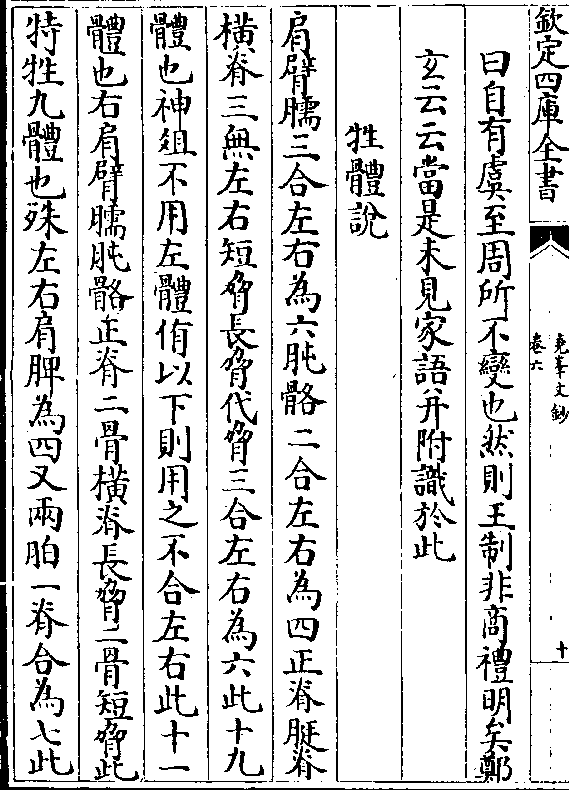 欽定四庫全書
堯峯文鈔
卷六
十
曰自有虞至周所不變也然則王制非商禮明矣鄭
玄云云當是未見家語并附識於此
牲體說
肩臂臑三合左右為六肫骼二合左右為四正脊脡脊
橫脊三無左右短脅長脅代脅三合左右為六此十九
體也神俎不用左體侑以下則用之不合左右此十一
體也右肩臂臑肫骼正脊二骨橫脊長脅二骨短脅此
特牲九體也殊左右肩脾為四又兩胉一脊合為七此